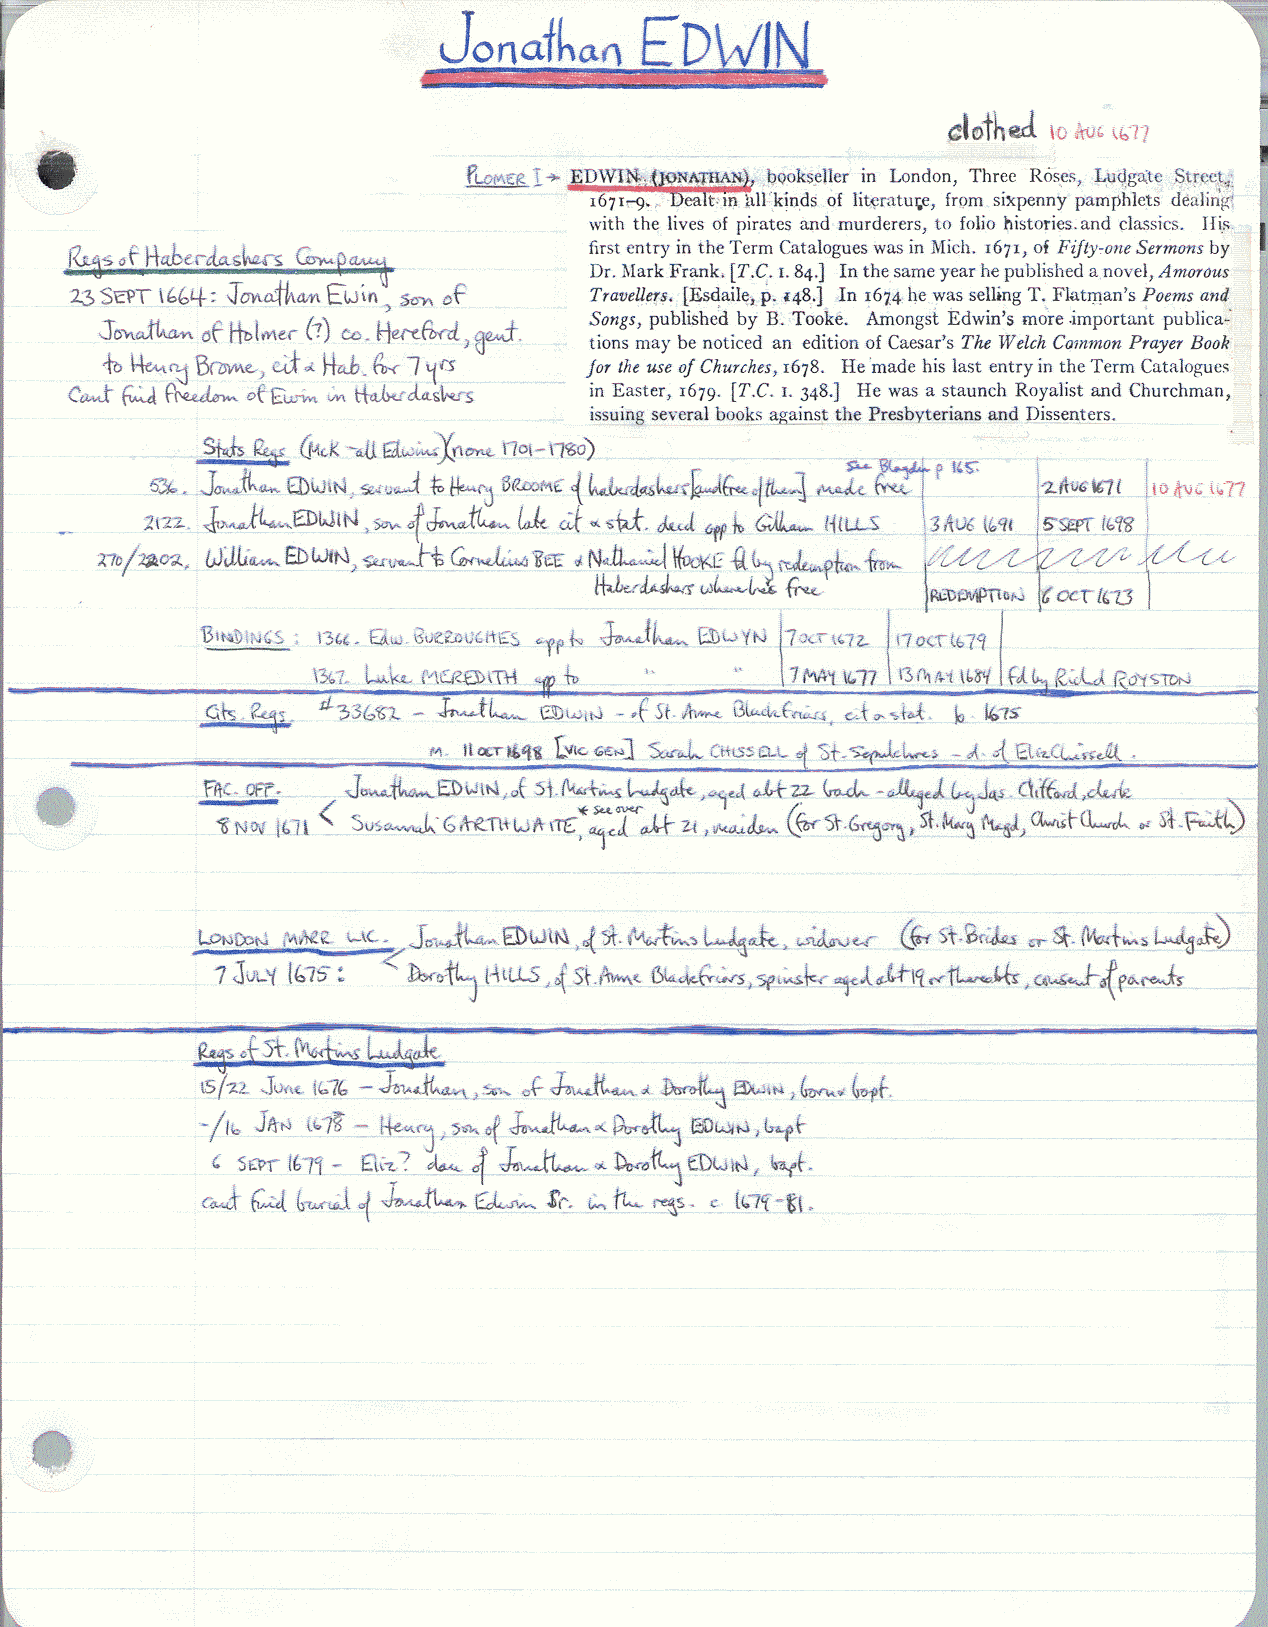 Jonathan EDWIN
clothed 10 AUG 1677
PLOMER I → EDWIN (JONATHAN), bookseller in London, Three Roses, Ludgate Street,
1671–9. Dealt in all kinds of literature, from sixpenny pamphlets dealing
with the lives of pirates and murderers, to folio histories and classics. His
first entry in the Term Catalogues was in Mich. 1671, of Fifty-one Sermons by
Dr. Mark Frank. [T.C. I. 84.] In the same year he published a novel, Amorous
Travellers. [Esdaile, p. 148.] In 1674 he was selling T. Flatman's Poems and
Songs, published by B. Tooke. Amongst Edwin's more important publica-
tions may be noticed an edition of Caesar's The Welch Common Prayer Book
for the use of Churches, 1678. He made his last entry in the Term Catalogues
in Easter, 1679. [T.C. I. 348.] He was a staunch Royalist and Churchman,
issuing several books against the Presbyterians and Dissenters.
Regs of Haberdashers Company
23 SEPT 1664: Jonathan Ewin, son of
Jonathan of Holmer (?) co. Hereford, gent.
to Henry Brome, cit & Hab. for 7 yrs
Cant find freedom of Ewin in Haberdashers
Stats Regs (McK - all Edwins)(none 1701-1780)
see Blagden p 165.
536. Jonathan EDWIN, servant to Henry BROOME of haberdashers [and free of them] made free 2 AUG 1671 10 AUG 1677
2122. Jonathan EDWIN, son of Jonathan late cit & stat. decd app to Gilham HILLS 3 AUG 1691 5 SEPT 1698
270/2202. William EDWIN, servant to Cornelius BEE & Nathaniel HOOKE fd by redemption from
Haberdashers where he's free REDEMPTION 6 OCT 1673
BINDINGS: 1366. Edw. BURROUGHES app to Jonathan EDWYN 7 OCT 1672 17 OCT 1679
1367. Luke MEREDITH app to " " 7 MAY 1677 13 MAY 1684 fd by Richd ROYSTON
Cits. Regs. #33682 – Jonathan EDWIN – of St. Anne Blackfriars, cit & stat. b. 1675
m. 11 OCT 1698 [VIC GEN] Sarah CHISSELL of St. Sepulchres – d. of Eliz Chissell.
FAC. OFF. Jonathan EDWIN, of St. Martins Ludgate, aged abt 22 bach – alleged by Jas. Clifford, clerk
* see over
8 NOV 1671 < Susannah GARTHWAITE, aged abt 21, maiden (for St. Gregory, St. Mary Magd, Christ Church or St. Faith)
LONDON MARR LIC. Jonathan EDWIN, of St. Martins Ludgate, widower (for St. Brides or St. Martins Ludgate)
7 JULY 1675: < Dorothy HILLS, of St. Anne Blackfriars, spinster aged abt 19 or thereabts, consent of parents
Regs of St. Martins Ludgate
15/22 June 1676 – Jonathan, son of Jonathan & Dorothy EDWIN, born & bapt.
-/16 JAN 1678 – Henry, son of Jonathan & Dorothy EDWIN, bapt
6 SEPT 1679 – Eliz? dau of Jonathan & Dorothy EDWIN, bapt.
cant find burial of Jonathan Edwin Sr. in the regs. c 1679-81.